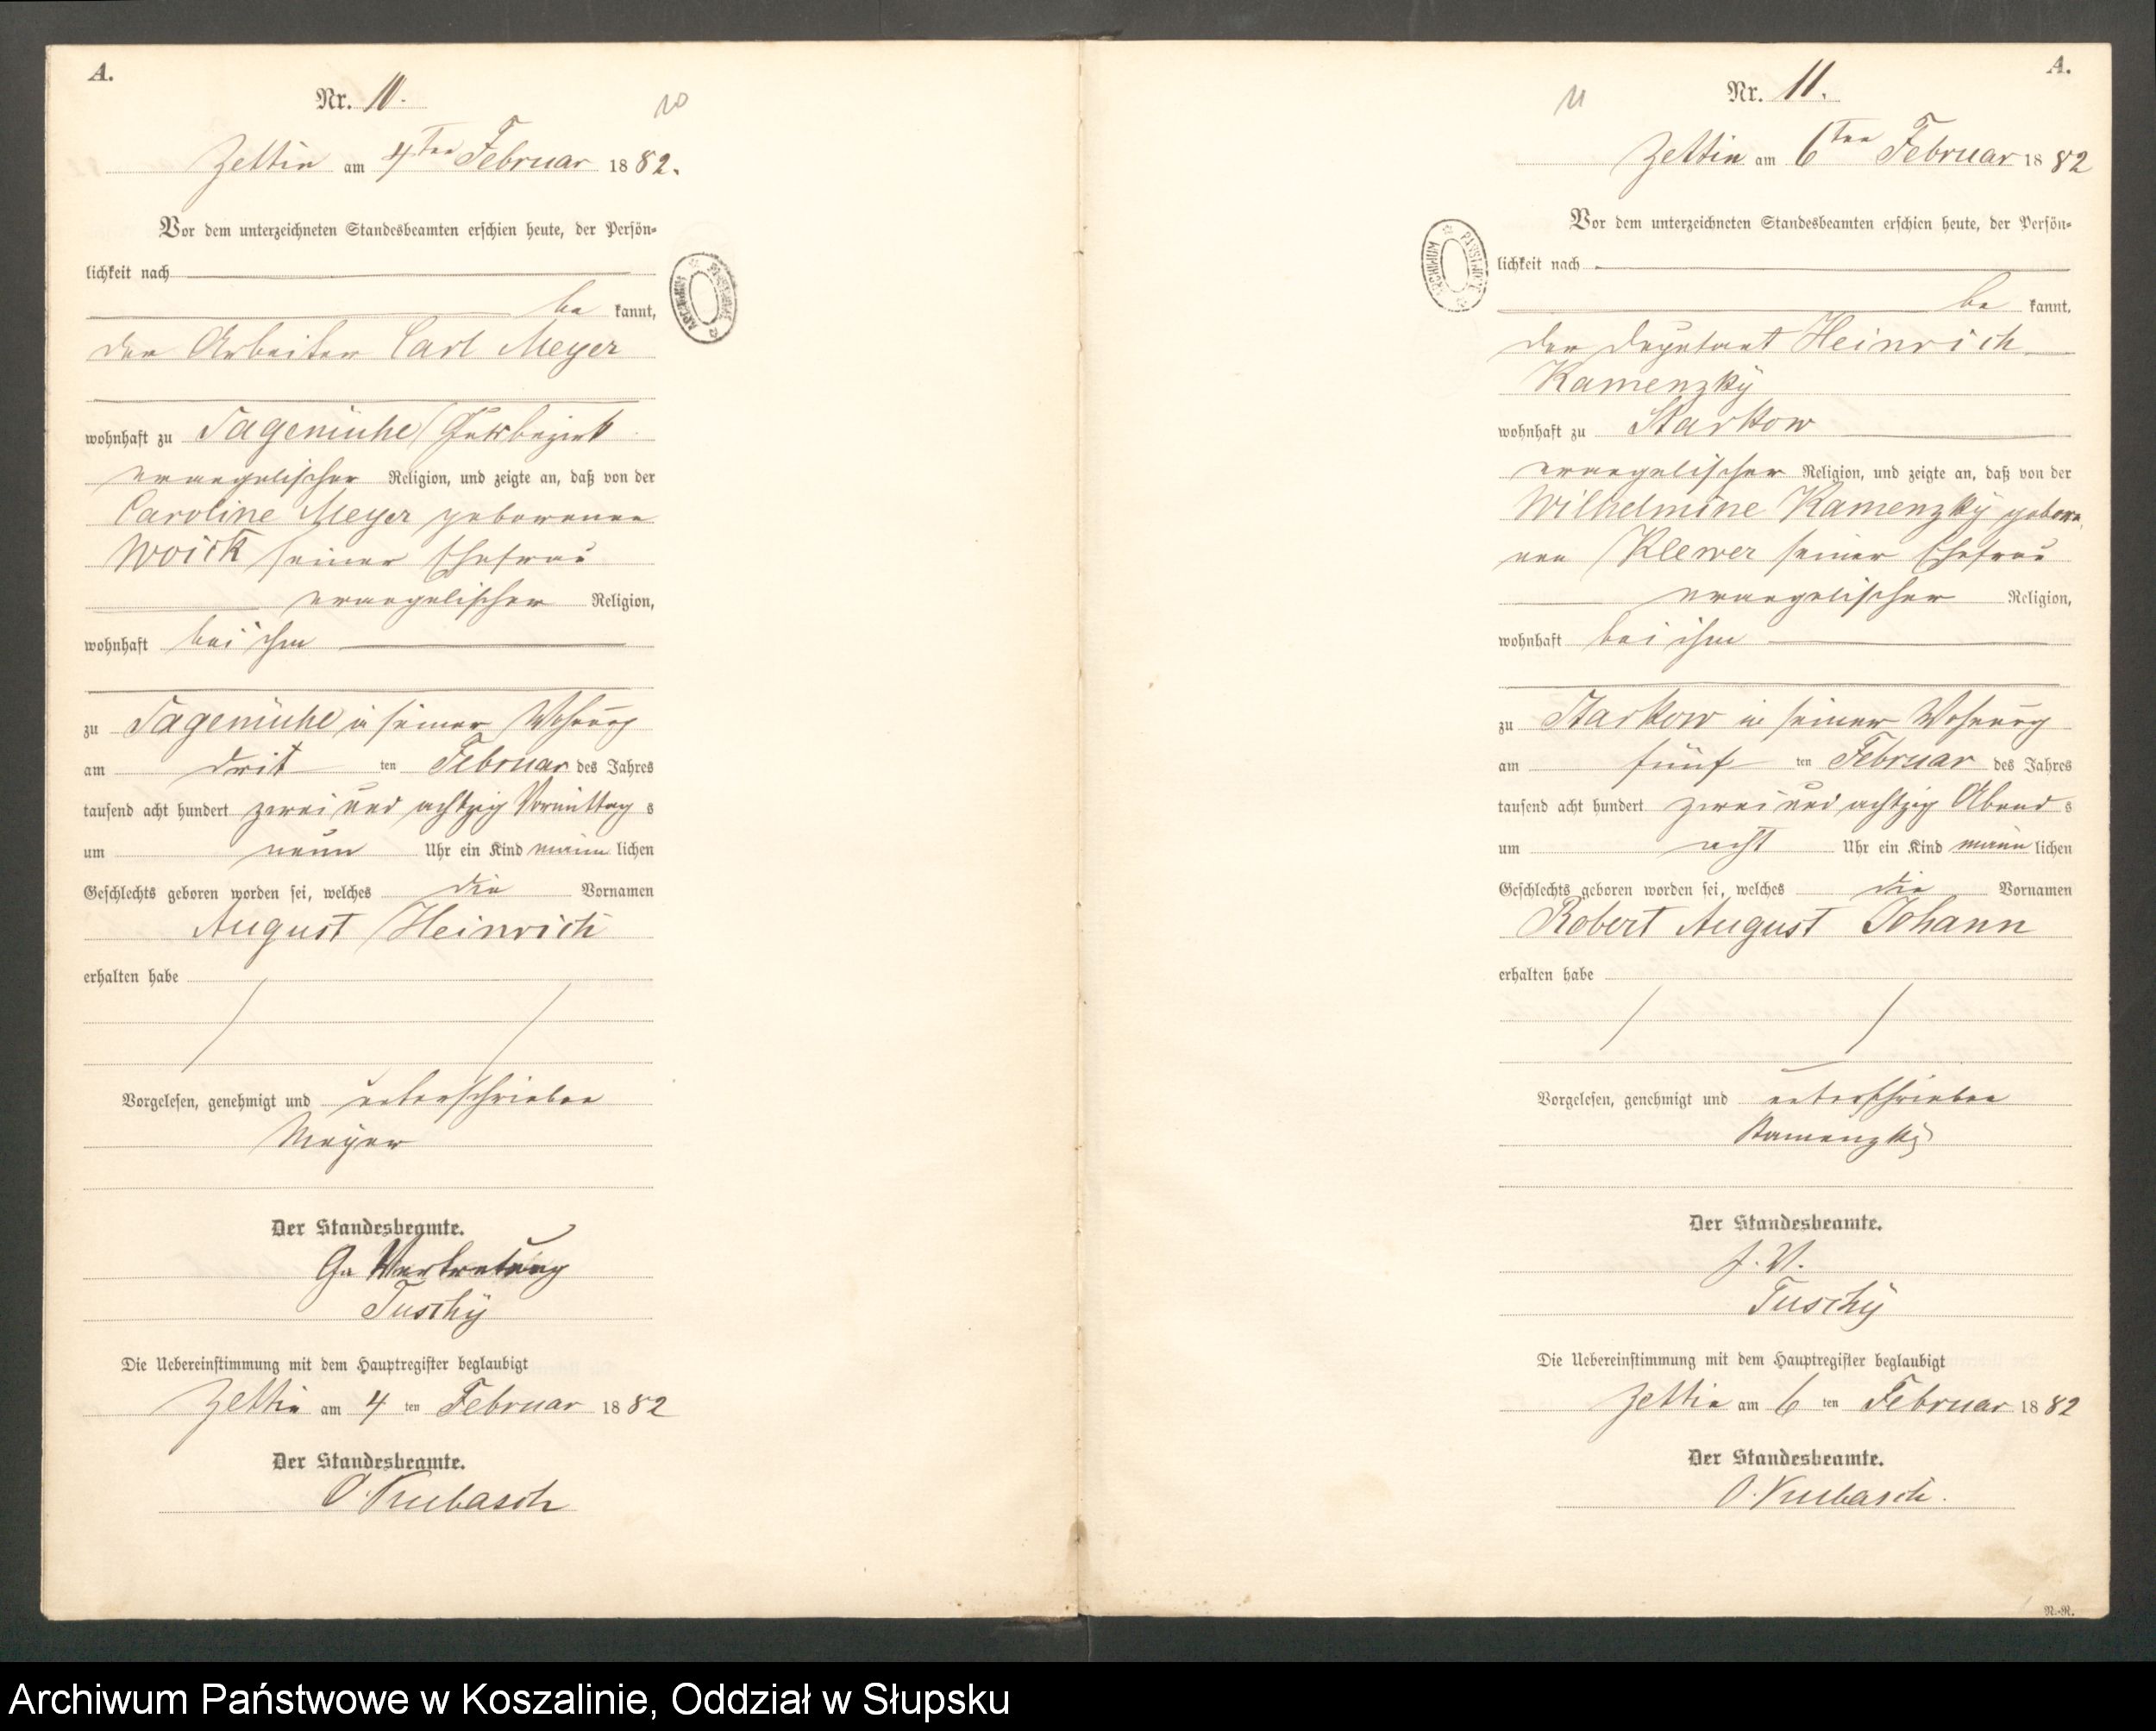 A.
Nr. 10.
10
Zettin am 4ten Februar 1882.
Vor dem unterzeichneten Standesbeamten erschien heute, der Persön-
lichkeit nach
be kannt,
der Arbeiter Carl Meyer
wohnhaft zu Sagemühe Gutsbezirk
evangelischer Religion, und zeigte an, daß von der
Caroline Meyer geborenen
Woick seiner Ehefrau
evangelischer Religion,
wohnhaft bei ihm
zu Sagemühe in seiner Wohnung
am drit ten Februar des Jahres
tausend acht hundert zwei und achtzig Vormittag s
um neun Uhr ein Kind männ lichen
Geschlechts geboren worden sei, welches die Vornamen
August Heinrich
erhalten habe
Vorgelesen, genehmigt und unterschrieben
Meyer
Der Standesbeamte.
In Vertretung
Tuschÿ
Die Uebereinstimmung mit dem Hauptregister beglaubigt
Zettin am 4 ten Februar 1882
Der Standesbeamte.
O. Kubasch
ARCHIWUM PAŃSTWOWE
A.
Nr. 11.
11
Zettin am 6ten Februar 1882
Vor dem unterzeichneten Standesbeamten erschien heute, der Persön-
lichkeit nach
be kannt,
der Deputant Heinrich
Kamenzkÿ
wohnhaft zu Starkow
evangelischer Religion, und zeigte an, daß von der
Wilhelmine Kamenzkÿ gebore
nen Klewer seiner Ehefrau
evangelischer Religion,
wohnhaft bei ihm
zu Starkow in seiner Wohnung
am fünf ten Februar des Jahres
tausend acht hundert zwei und achtzig Abend s
um acht Uhr ein Kind männ lichen
Geschlechts geboren worden sei, welches die Vornamen
Robert August Johann
erhalten habe
Vorgelesen, genehmigt und unterschrieben
Kamenzkÿ
Der Standesbeamte.
J. V.
Tuschÿ
Die Uebereinstimmung mit dem Hauptregister beglaubigt
Zettin am 6 ten Februar 1882
Der Standesbeamte.
O. Kubasch.
N.-R.
ARCHIWUM PAŃSTWOWE
Archiwum Państwowe w Koszalinie, Oddział w Słupsku